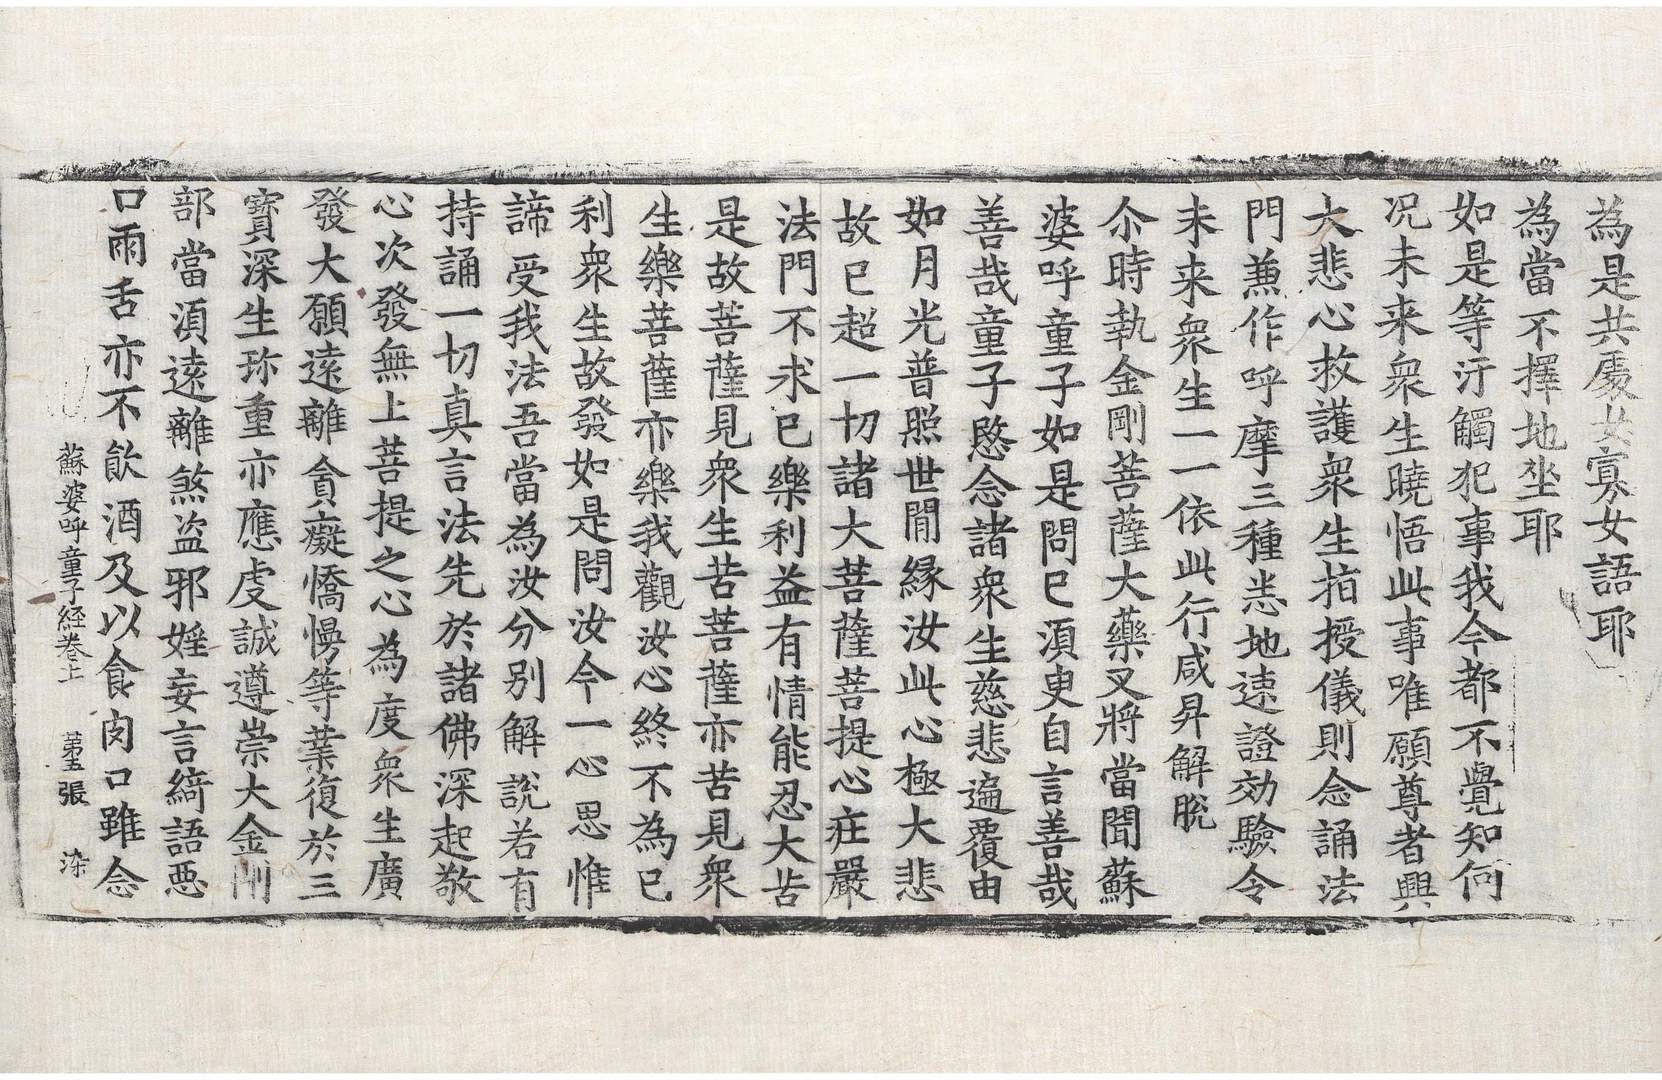 為是共處女寡女語耶
為當不擇地坐耶
如是等汙觸犯事我今都不覺知何
况未来衆生曉悟此事唯願尊者興
大悲心救護衆生指授儀則念誦法
門兼作呼摩三種悉地速證効驗令
未来衆生一一依此行咸昇解脫
尒時執金剛菩薩大藥叉將當聞蘇
婆呼童子如是問已須臾自言善哉
善哉童子愍念諸衆生慈悲遍覆由
如月光普照世間縁汝此心極大悲
故已超一切諸大菩薩菩提心庄嚴
法門不求已樂利益有情能忍大苦
是故菩薩見衆生苦菩薩亦苦見衆
生樂菩薩亦樂我觀汝心終不為已
利衆生故發如是問汝今一心思惟
諦受我法吾當為汝分别解說若有
持誦一切真言法先於諸佛深起敬
心次發無上菩提之心為度衆生廣
發大願遠離貪癡憍慢等業復於三
寶深生珎重亦應虔誠遵崇大金剛
部當須遠離煞盜邪婬妄言綺語惡
口兩舌亦不飲酒及以食肉口雖念
蘇婆呼童子経卷上 第五張 染